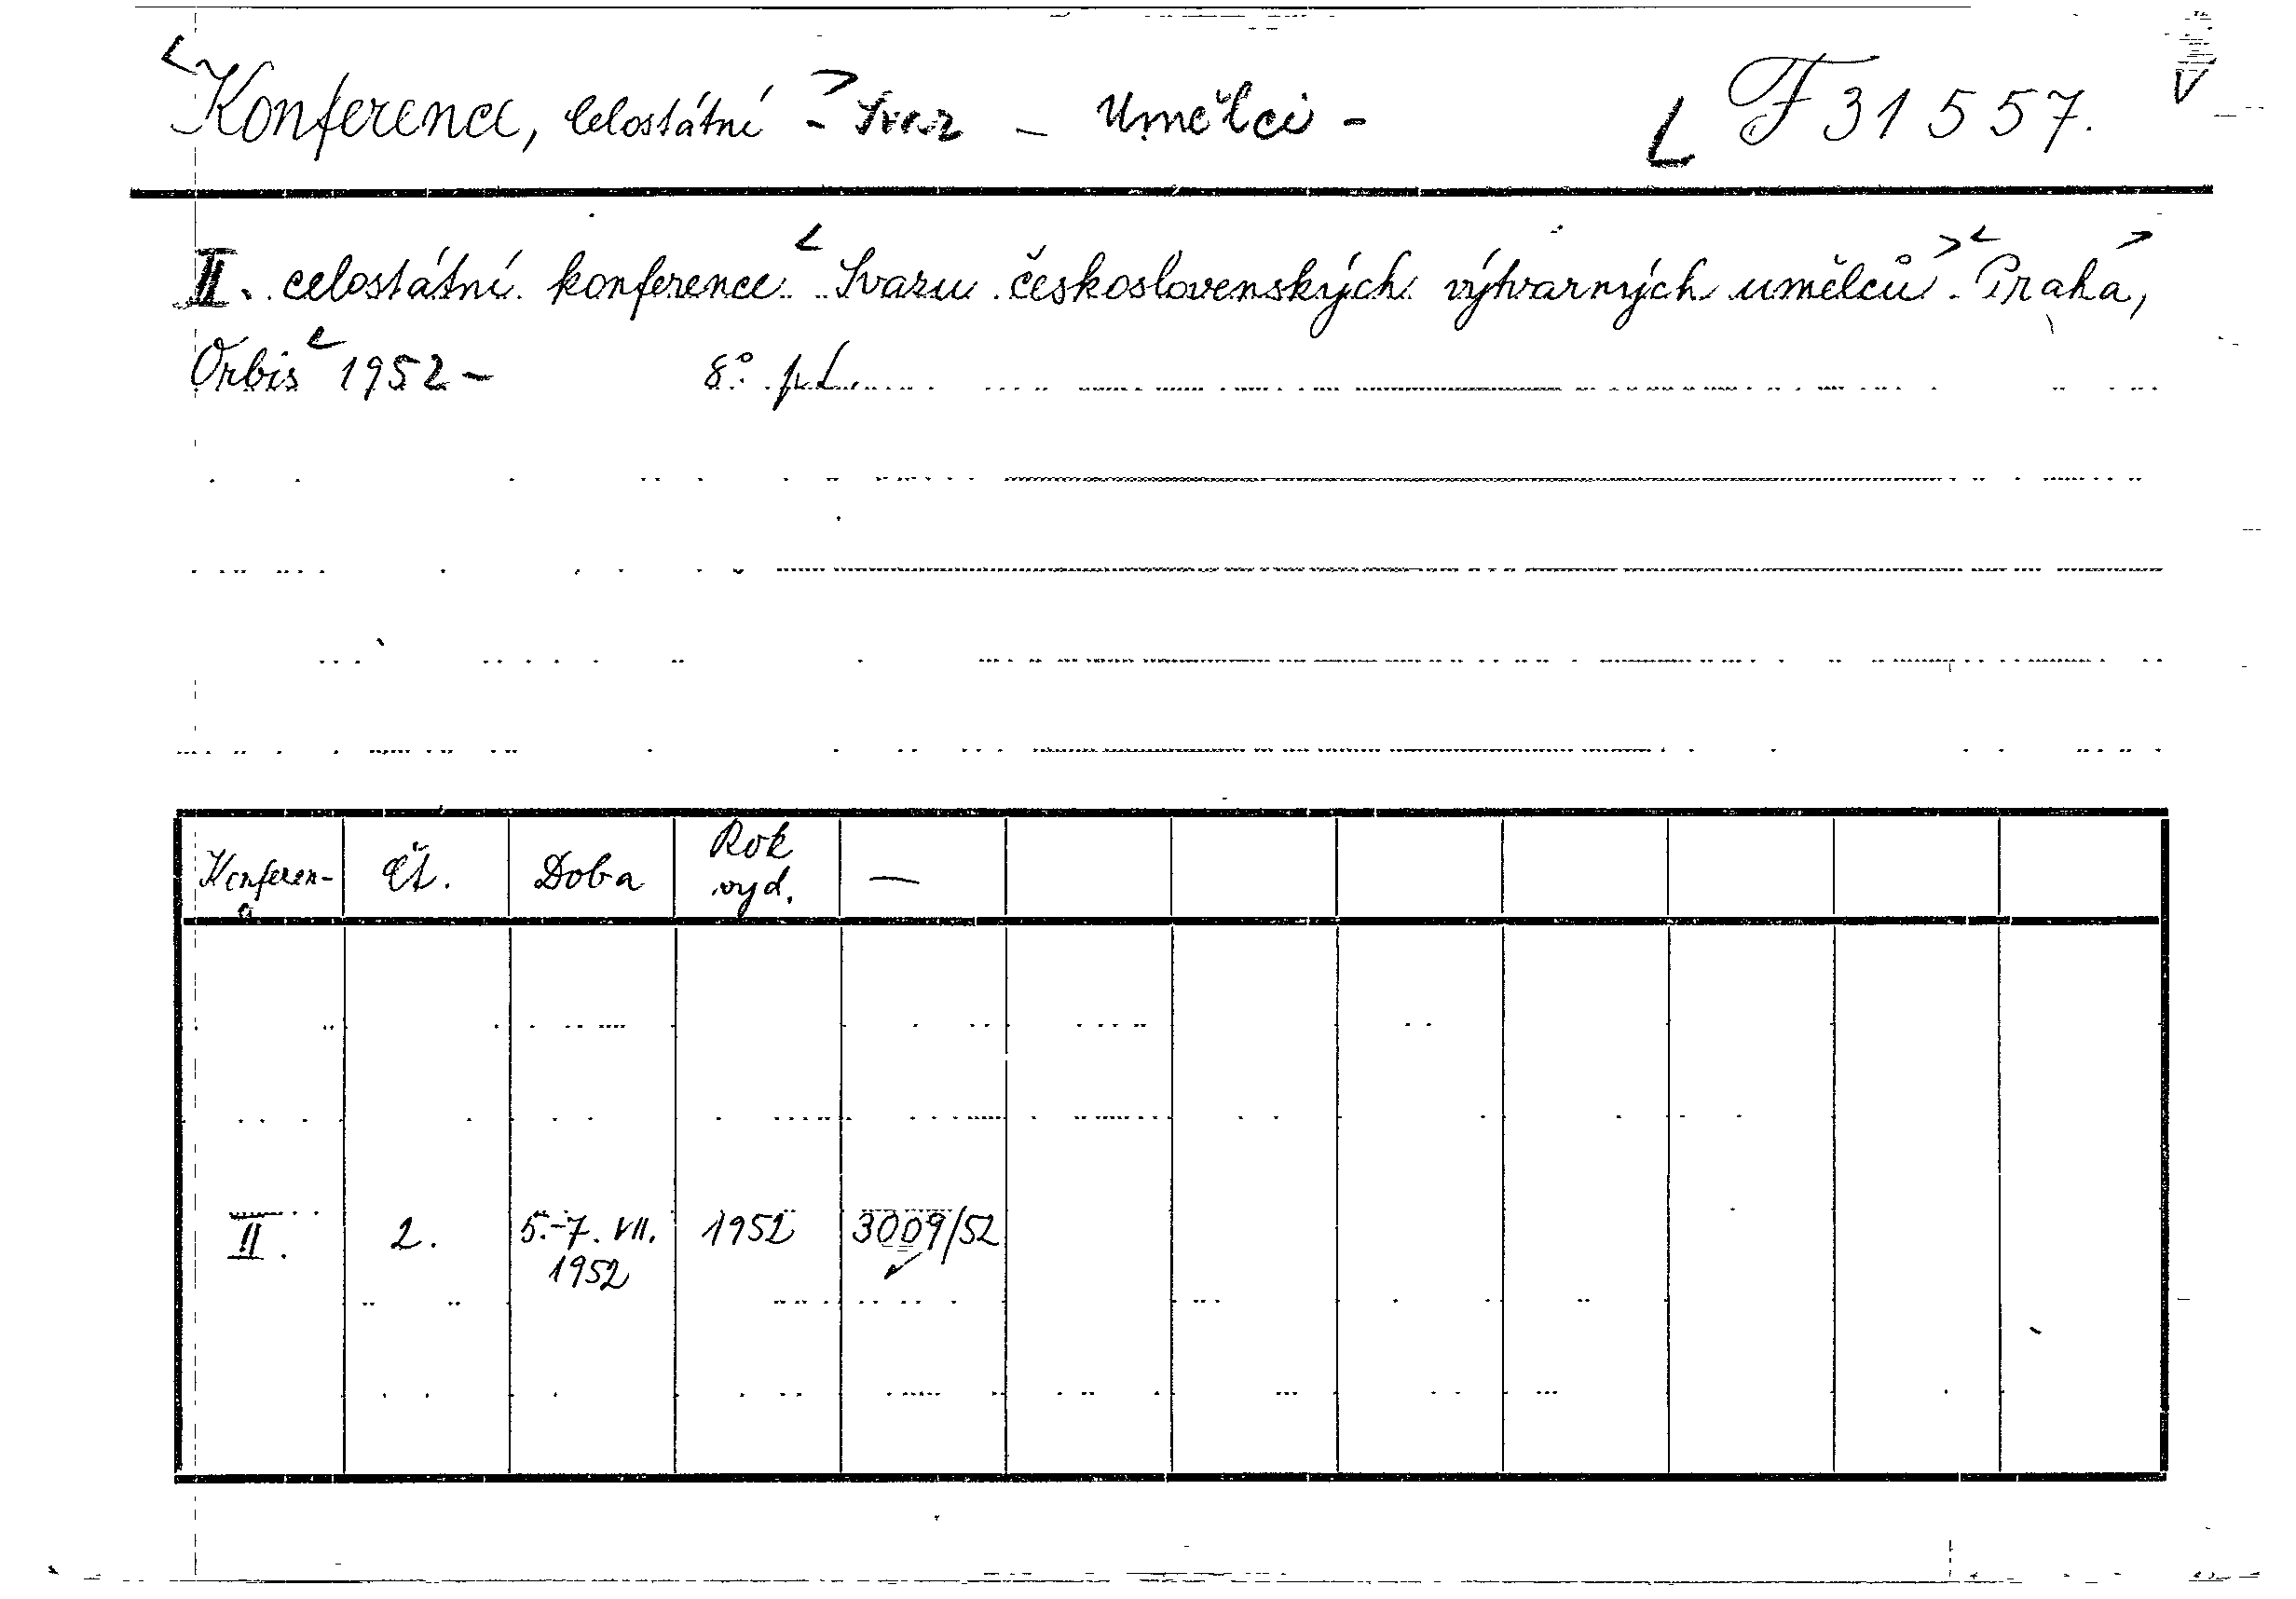 Konference, celostátní - Svaz - Umělci - F 31557.
II. celostátní konference Svazu československých výtvarných umělců. Praha,
Orbis 1952 - 8°
Konferen- Čí. Doba Rok vyd. —
II. 2. 5.-7. VII. 1952 1952 3009/52